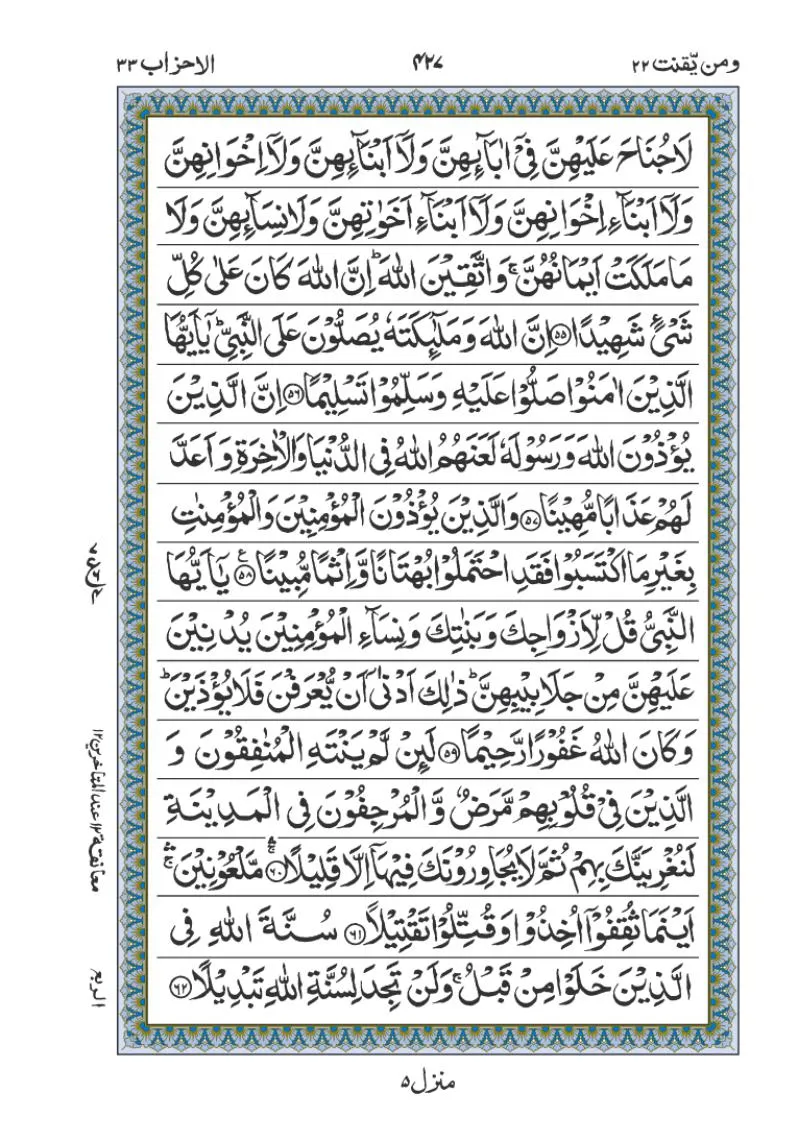 ومن يّقنت ٢٢
٤٢٧
الاحزاب ٣٣
لَا جُنَاحَ عَلَيْهِنَّ فِيْۤ اٰبَآئِهِنَّ وَلَاۤ اَبْنَآئِهِنَّ وَلَاۤ اِخْوَانِهِنَّ
وَلَاۤ اَبْنَآءِ اِخْوَانِهِنَّ وَلَاۤ اَبْنَآءِ اَخَوٰتِهِنَّ وَلَا نِسَآئِهِنَّ وَلَا
مَا مَلَكَتْ اَيْمَانُهُنَّ ۚ وَاتَّقِيْنَ اللّٰهَ ؕ اِنَّ اللّٰهَ كَانَ عَلٰى كُلِّ
شَيْءٍ شَهِيْدًا ﴿٥٥﴾ اِنَّ اللّٰهَ وَمَلٰٓئِكَتَهٗ يُصَلُّوْنَ عَلَى النَّبِيِّ ؕ يٰۤاَيُّهَا
الَّذِيْنَ اٰمَنُوْا صَلُّوْا عَلَيْهِ وَسَلِّمُوْا تَسْلِيْمًا ﴿٥٦﴾ اِنَّ الَّذِيْنَ
يُؤْذُوْنَ اللّٰهَ وَرَسُوْلَهٗ لَعَنَهُمُ اللّٰهُ فِي الدُّنْيَا وَالْاٰخِرَةِ وَاَعَدَّ
لَهُمْ عَذَابًا مُّهِيْنًا ﴿٥٧﴾ وَالَّذِيْنَ يُؤْذُوْنَ الْمُؤْمِنِيْنَ وَالْمُؤْمِنٰتِ
بِغَيْرِ مَا اكْتَسَبُوْا فَقَدِ احْتَمَلُوْا بُهْتَانًا وَّاِثْمًا مُّبِيْنًا ﴿٥٨﴾ ع يٰۤاَيُّهَا
النَّبِيُّ قُلْ لِّاَزْوَاجِكَ وَبَنٰتِكَ وَنِسَآءِ الْمُؤْمِنِيْنَ يُدْنِيْنَ
عَلَيْهِنَّ مِنْ جَلَابِيْبِهِنَّ ؕ ذٰلِكَ اَدْنٰۤى اَنْ يُّعْرَفْنَ فَلَا يُؤْذَيْنَ ؕ
وَكَانَ اللّٰهُ غَفُوْرًا رَّحِيْمًا ﴿٥٩﴾ لَئِنْ لَّمْ يَنْتَهِ الْمُنٰفِقُوْنَ وَ
الَّذِيْنَ فِيْ قُلُوْبِهِمْ مَّرَضٌ وَّالْمُرْجِفُوْنَ فِي الْمَدِيْنَةِ
لَنُغْرِيَنَّكَ بِهِمْ ثُمَّ لَا يُجَاوِرُوْنَكَ فِيْهَاۤ اِلَّا قَلِيْلًا ﴿٦٠﴾ مَّلْعُوْنِيْنَ ۛۚ
اَيْنَمَا ثُقِفُوْۤا اُخِذُوْا وَقُتِّلُوْا تَقْتِيْلًا ﴿٦١﴾ سُنَّةَ اللّٰهِ فِي
الَّذِيْنَ خَلَوْا مِنْ قَبْلُ ۚ وَلَنْ تَجِدَ لِسُنَّةِ اللّٰهِ تَبْدِيْلًا ﴿٦٢﴾
معانقة ١٢ عند المتاخرين ١٢
الربع
منزل ٥